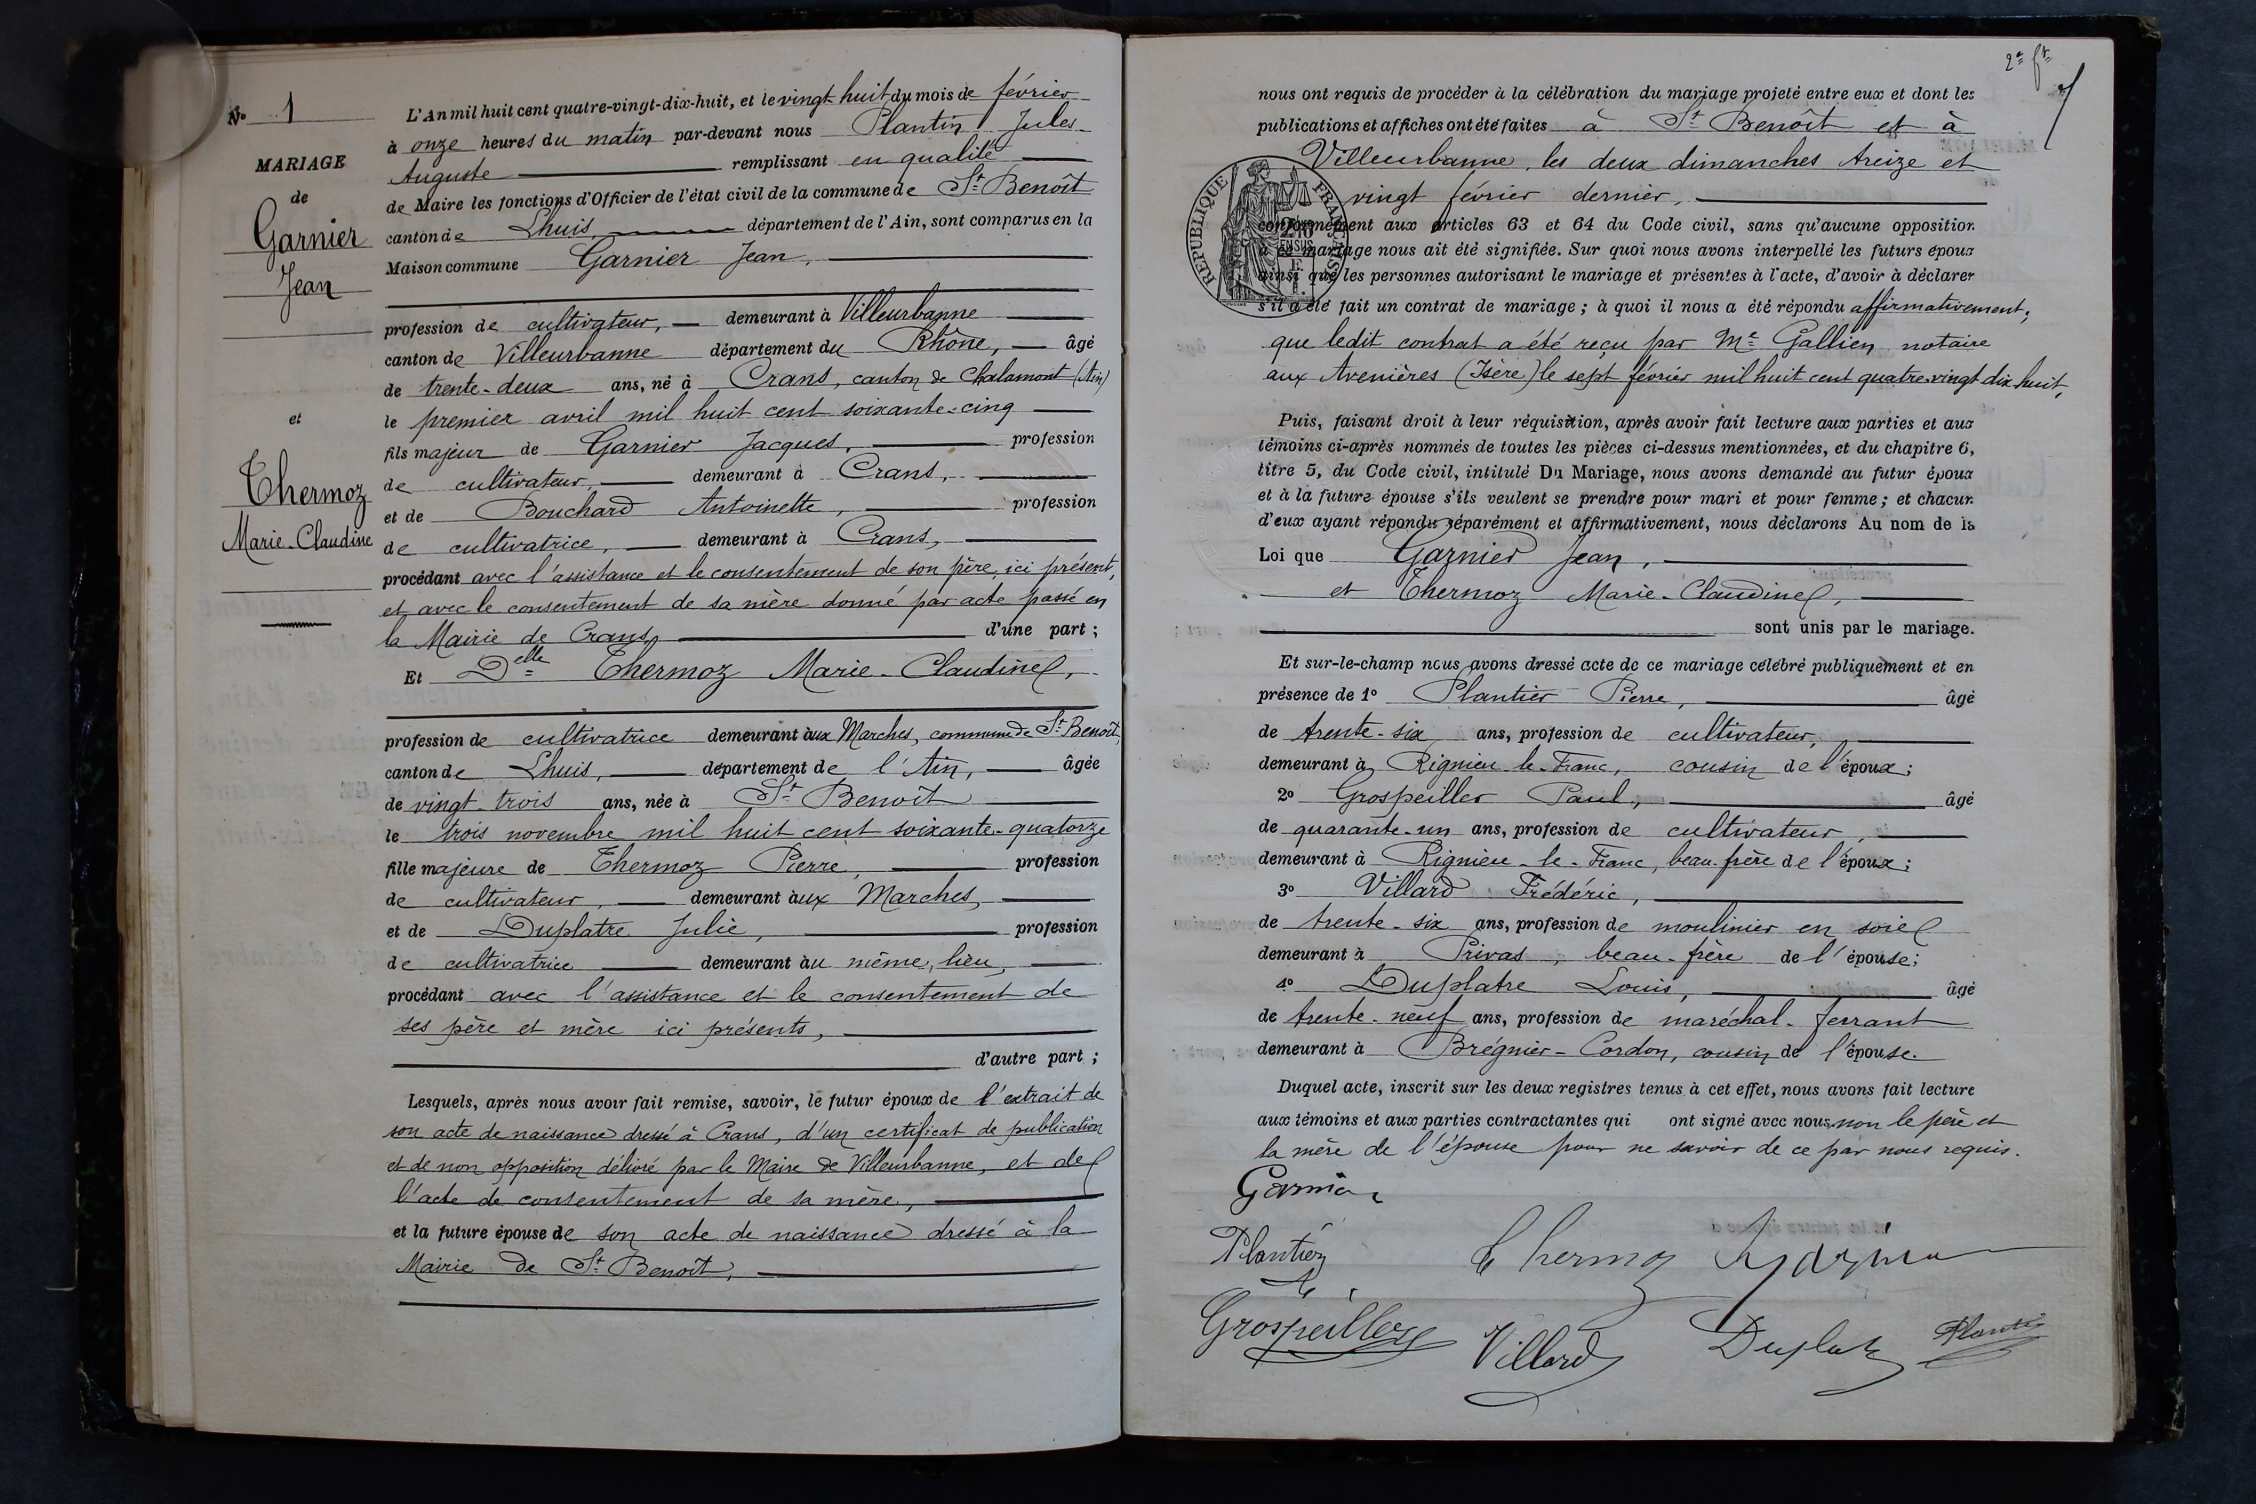 No 1
MARIAGE
de
Garnier
Jean
et
Thermoz
Marie-Claudine
L'An mil huit cent quatre-vingt-dix-huit, et le vingt-huit du mois de février
à onze heures du matin par-devant nous Plantin Jules
Auguste remplissant en qualité
de Maire les fonctions d'Officier de l'état civil de la commune de St Benoît
canton de Lhuis, département de l'Ain, sont comparus en la
Maison commune Garnier Jean,
profession de cultivateur, demeurant à Villeurbanne
canton de Villeurbanne département du Rhône, âgé
de trente-deux ans, né à Crans, canton de Chalamont (Ain)
le premier avril mil huit cent soixante-cinq
fils majeur de Garnier Jacques, profession
de cultivateur, demeurant à Crans,
et de Bouchard Antoinette, profession
de cultivatrice, demeurant à Crans,
procédant avec l'assistance et le consentement de son père, ici présent,
et avec le consentement de sa mère donné par acte passé en
la Mairie de Crans, d'une part ;
Et Delle Thermoz Marie-Claudine,
profession de cultivatrice demeurant aux Marches, commune de St Benoît,
canton de Lhuis, département de l'Ain, âgée
de vingt-trois ans, née à St Benoît
le trois novembre mil huit cent soixante-quatorze
fille majeure de Thermoz Pierre, profession
de cultivateur, demeurant aux Marches,
et de Duplatre Julie, profession
de cultivatrice demeurant au même lieu,
procédant avec l'assistance et le consentement de
ses père et mère ici présents,
d'autre part ;
Lesquels, après nous avoir fait remise, savoir, le futur époux de l'extrait de
son acte de naissance dressé à Crans, d'un certificat de publication
et de non opposition délivré par le Maire de Villeurbanne, et de
l'acte de consentement de sa mère,
et la future épouse de son acte de naissance dressé à la
Mairie de St Benoît,
2e ft
7
nous ont requis de procéder à la célébration du mariage projeté entre eux et dont les
publications et affiches ont été faites à St Benoît et à
Villeurbanne, les deux dimanches treize et
vingt février dernier,
RÉPUBLIQUE FRANÇAISE
conformément aux articles 63 et 64 du Code civil, sans qu'aucune opposition
à ce mariage nous ait été signifiée. Sur quoi nous avons interpellé les futurs époux
ainsi que les personnes autorisant le mariage et présentes à l'acte, d'avoir à déclarer
s'il a été fait un contrat de mariage ; à quoi il nous a été répondu affirmativement;
que ledit contrat a été reçu par Me Gallien notaire
aux Avenières (Isère) le sept février mil huit cent quatre-vingt dix huit,
Puis, faisant droit à leur réquisition, après avoir fait lecture aux parties et aux
témoins ci-après nommés de toutes les pièces ci-dessus mentionnées, et du chapitre 6,
titre 5, du Code civil, intitulé Du Mariage, nous avons demandé au futur époux
et à la future épouse s'ils veulent se prendre pour mari et pour femme ; et chacun
d'eux ayant répondu séparément et affirmativement, nous déclarons Au nom de la
Loi que Garnier Jean,
et Thermoz Marie-Claudine,
sont unis par le mariage.
Et sur-le-champ nous avons dressé acte de ce mariage célébré publiquement et en
présence de 1o Plantier Pierre, âgé
de trente-six ans, profession de cultivateur,
demeurant à Rignieu-le-Franc, cousin de l'époux ;
2o Grospeiller Paul, âgé
de quarante-un ans, profession de cultivateur,
demeurant à Rignieu-le-Franc, beau-frère de l'époux ;
3o Villard Frédéric,
de trente-six ans, profession de moulinier en soie
demeurant à Privas, beau-frère de l'épouse ;
4o Duplatre Louis, âgé
de trente-neuf ans, profession de maréchal-ferrant
demeurant à Brégnier-Cordon, cousin de l'épouse.
Duquel acte, inscrit sur les deux registres tenus à cet effet, nous avons fait lecture
aux témoins et aux parties contractantes qui ont signé avec nous, non le père et
la mère de l'épouse pour ne savoir de ce par nous requis.
Garnier
Plantier
Thermoz
Grospeiller
Villard
Duplatre
Plantin